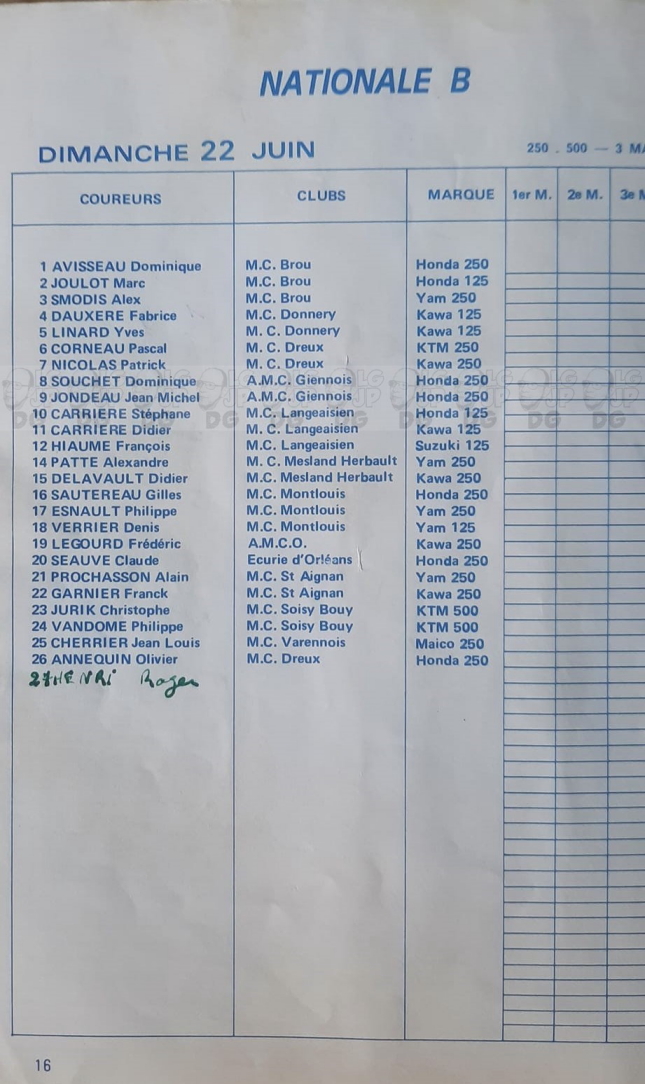 NATIONALE B
DIMANCHE 22 JUIN 250 . 500 — 3 MA
COUREURS CLUBS MARQUE 1er M. 2e M. 3e M
1 AVISSEAU Dominique M.C. Brou Honda 250
2 JOULOT Marc M.C. Brou Honda 125
3 SMODIS Alex M.C. Brou Yam 250
4 DAUXERE Fabrice M.C. Donnery Kawa 125
5 LINARD Yves M. C. Donnery Kawa 125
6 CORNEAU Pascal M. C. Dreux KTM 250
7 NICOLAS Patrick M. C. Dreux Kawa 250
8 SOUCHET Dominique A.M.C. Giennois Honda 250
9 JONDEAU Jean Michel A.M.C. Giennois Honda 250
10 CARRIERE Stéphane M.C. Langeaisien Honda 125
11 CARRIERE Didier M. C. Langeaisien Kawa 125
12 HIAUME François M.C. Langeaisien Suzuki 125
14 PATTE Alexandre M. C. Mesland Herbault Yam 250
15 DELAVAULT Didier M.C. Mesland Herbault Kawa 250
16 SAUTEREAU Gilles M.C. Montlouis Honda 250
17 ESNAULT Philippe M.C. Montlouis Yam 250
18 VERRIER Denis M.C. Montlouis Yam 125
19 LEGOURD Frédéric A.M.C.O. Kawa 250
20 SEAUVE Claude Ecurie d'Orléans Honda 250
21 PROCHASSON Alain M.C. St Aignan Yam 250
22 GARNIER Franck M.C. St Aignan Kawa 250
23 JURIK Christophe M.C. Soisy Bouy KTM 500
24 VANDOME Philippe M.C. Soisy Bouy KTM 500
25 CHERRIER Jean Louis M.C. Varennois Maico 250
26 ANNEQUIN Olivier M.C. Dreux Honda 250
27 HENRI Roger
16